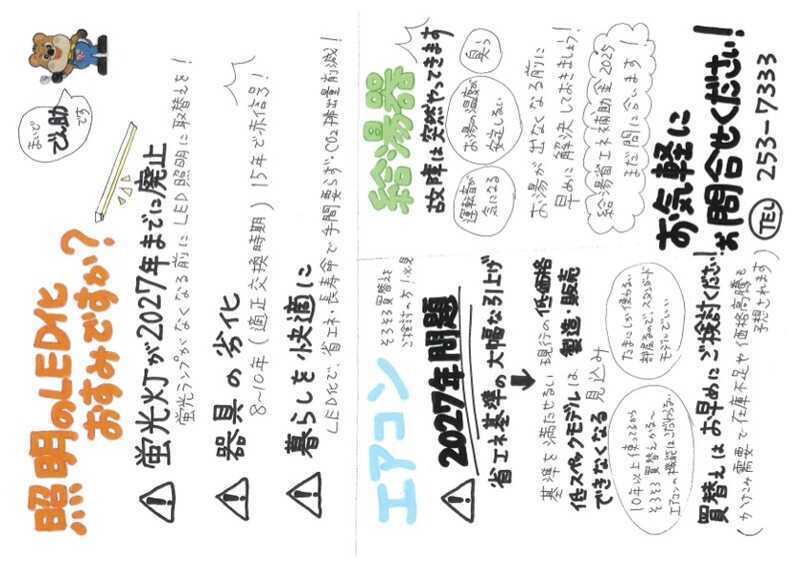 まいど
でん助
です
照明のLED化
おすみですか？
蛍光灯が2027年までに廃止
蛍光ランプがなくなる前にLED照明に取替えを！
器具の劣化
8~10年（適正交換時期）15年で赤信号！
暮らしを快適に
LED化で、省エネ・長寿命で手間要らず・CO2排出量削減！
エアコン
そろそろ買替えを
ご検討の方！必見
2027年問題
省エネ基準の大幅な引上げ
基準を満たせない現行の低価格
低スペックモデルは、製造・販売
できなくなる見込み
10年以上使ってるから
そろそろ買替えかな〜
エアコンの機能はこだわらない
たまにしか使わない
部屋なので、スタンダード
モデルでいい
買替えはお早めにご検討ください！
（かけこみ需要で在庫不足や価格高騰も
予想されます）
給湯器
故障は突然やってきます
運転音が
気になる
お湯の温度が
安定しない
臭う
お湯が出なくなる前に
早めに解決しておきましょう！
給湯省エネ補助金2025
まだ間に合います！
お気軽に
お問合せください！
TEL 253-7333